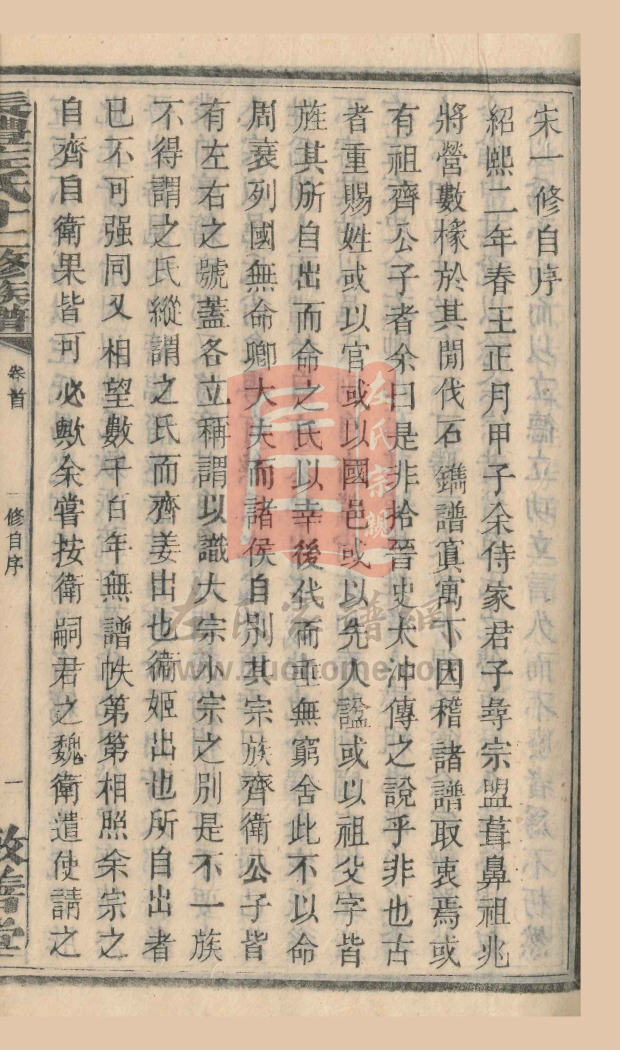 宋一修自序
紹熙二年春王正月甲子余侍家君子尋宗盟葺鼻祖兆
將營數椽於其閒伐石鐫譜窴寓下因稽諸譜取衷焉或
有祖齊公子者余曰是非拾晉史太沖傳之說乎非也古
者重賜姓或以官或以國邑或以先人謚或以祖父字皆
旌其所自出而命之氏以幸後代而垂無窮舍此不以命
周衰列國無命卿大夫而諸侯自別其宗族齊衛公子皆
有左右之號蓋各立稱謂以識大宗小宗之別是不一族
不得謂之氏縱謂之氏而齊姜出也衞姬出也所自出者
已不可强同又相望數千百年無譜帙第第相照余宗之
自齊自衛果皆可必歟余嘗按衛嗣君之魏衛遣使請之
左氏十二修族譜
卷首
一修自序
一
敦善堂
左氏宗親
左氏家譜網
www.zuotome.com